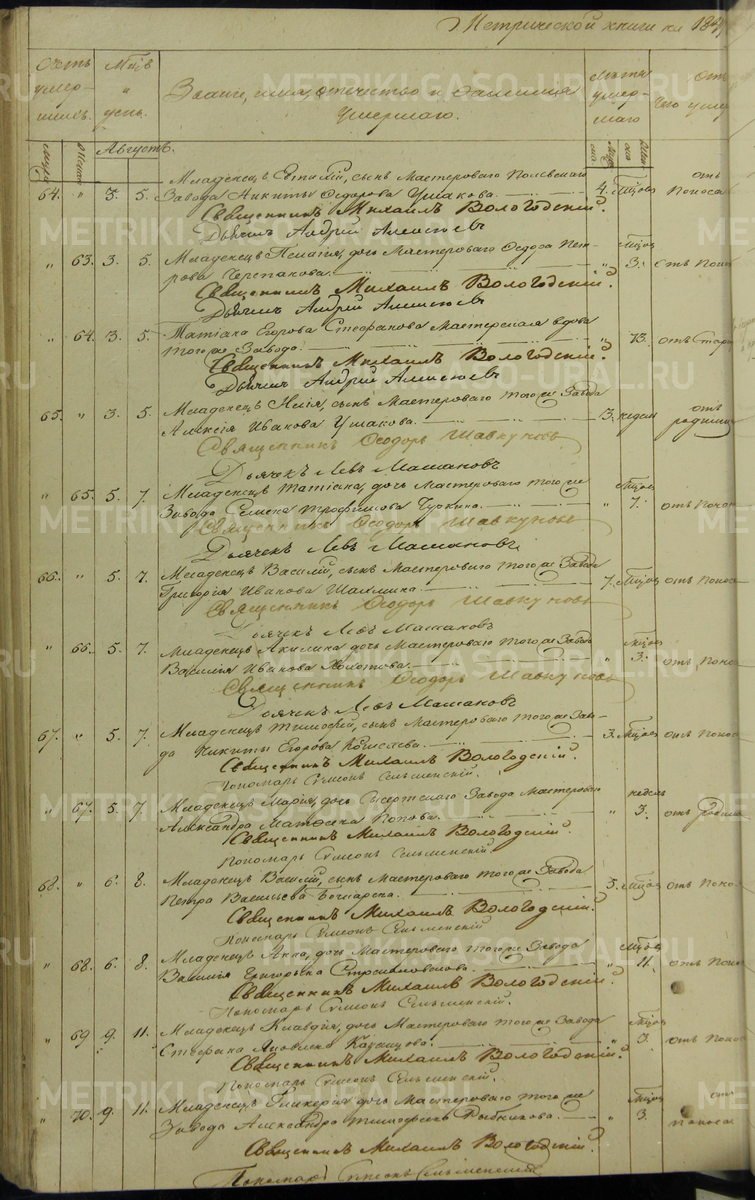 Метрической книги на 184
Счетъ умер-шихъ.
Мцъ и день.
Званіе, имя, отечество и фамилія умершаго.
Лѣта умер-шаго
Отъ чего умеръ
Августъ.
64. " 3. 5. Младенецъ Евтихій, сынъ Мастероваго Полевскаго
Завода Никиты Ѳедорова Ушакова. 4. Мцовъ отъ поноса
Священникъ Михаилъ Вологодскій.
Дьячекъ Андрей Алексѣевъ
" 63. 3. 5. Младенецъ Пелагія, дочь Мастероваго Ѳедора Пет-
рова Черепанова. " Мцов 3. отъ поно
Священникъ Михаилъ Вологодскій.
Дьячекъ Андрей Алексѣевъ
" 64. 3. 5. Татіана Егорова Стефанова Мастерская вдова
того же Завода. 73. отъ стар
Священникъ Михаилъ Вологодскій.
Дьячекъ Андрей Алексѣевъ
65. " 3. 5. Младенецъ Илія, сынъ Мастероваго того же Завода
Алексія Иванова Ушакова. 3. недел отъ родимц
Священникъ Ѳеодоръ Шавкуновъ
Дьячекъ Левъ Машановъ
" 65. 5. 7. Младенецъ Татіана, дочь Мастероваго того же
Завода Семена Трофимова Чуркина. " Мцов 7. отъ поно
Священникъ Ѳеодоръ Шавкуновъ
Дьячекъ Левъ Машановъ
66. " 5. 7. Младенецъ Василій, сынъ Мастероваго того же Завода
Григорія Иванова 7. Мцов отъ поноса
Священникъ Ѳеодоръ Шавкуновъ
Дьячекъ Левъ Машановъ
" 66. 5. 7. Младенецъ Акилина дочь Мастероваго того же Завода
Василія Иванова " Мцов 3. отъ поно
Священникъ Ѳеодоръ Шавкуновъ
Дьячекъ Левъ Машановъ
67. " 5. 7. Младенецъ Тимофей, сынъ Мастероваго того же Заво-
да Никиты Егорова 3. Мцов отъ поноса
Священникъ Михаилъ Вологодскій.
Пономарь Симеонъ Сельменскій.
" 67. 5. 7. Младенецъ Марія, дочь Сысертскаго Завода Мастероваго
Александра Матвѣева Попова. " недель 3. отъ родимц
Священникъ Михаилъ Вологодскій.
Пономарь Симеонъ Сельменскій
68. " 6. 8. Младенецъ Василій, сынъ Мастероваго того же Завода
Петра Васильева Бочкарева. 5. Мцов отъ поно
Священникъ Михаилъ Вологодскій.
Пономарь Симеонъ Сельменскій
" 68. 6. 8. Младенецъ Анна, дочь Мастероваго того же Завода
Василія Григорьева " Мцов 11. отъ поно
Священникъ Михаилъ Вологодскій.
Пономарь Симеонъ Сельменскій.
" 69 9. 11. Младенецъ Клавдія, дочь Мастероваго того же Завода
Стефана Яковлева " Мцов 3. отъ поно
Священникъ Михаилъ Вологодскій.
Пономарь Симеонъ Сельменскій.
" 70. 9. 11. Младенецъ Гликерія дочь Мастероваго того же
Завода Александра Тимофеева Рыбникова. " Мцов 3. отъ поноса
Священникъ Михаилъ Вологодскій.
Пономарь Симеонъ Сельменскій
METRIKI.GASO-URAL.RU